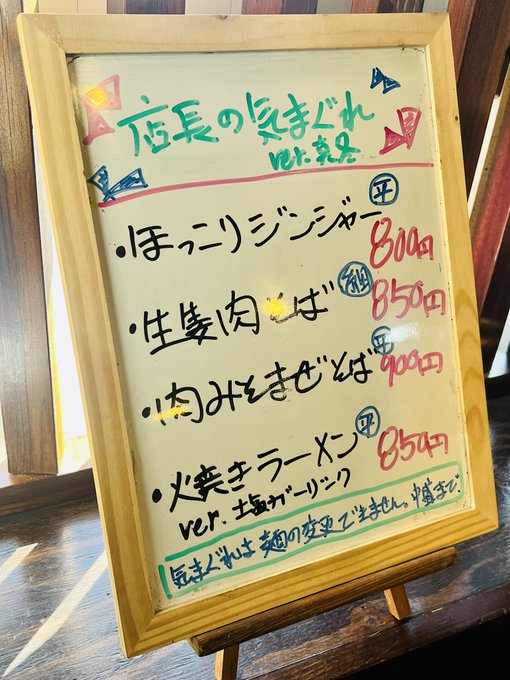 店長の気まぐれ
ver.真冬
・ほっこりジンジャー 平
800円
・生姜肉そば 細
850円
・肉みそまぜそば 平
900円
・焼きラーメン 平
850円
ver.塩ガーリック
気まぐれは麺の変更で生ません。中盛まで。